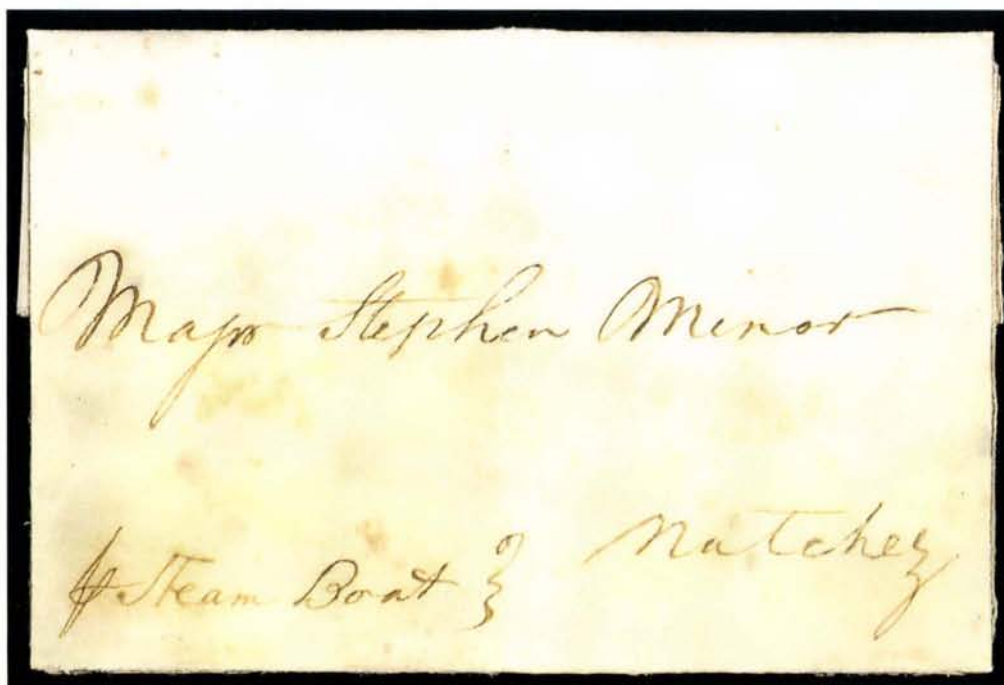 Major Stephen Minor
⅌ Steam Boat } Natchez